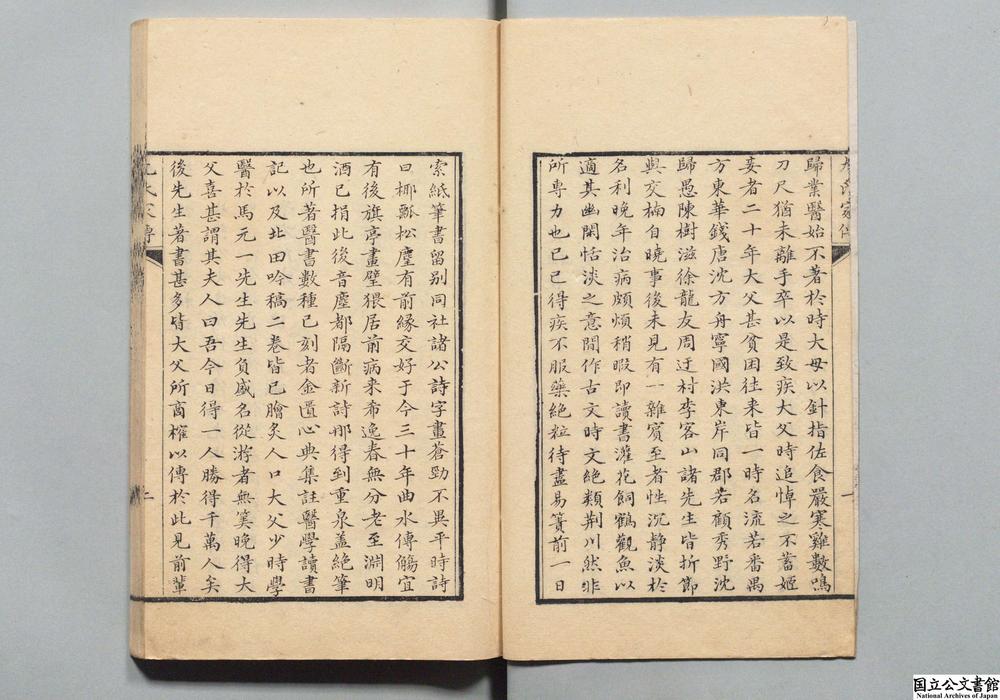 歸業醫始不著於時大母以針指佐食嚴寒雞數鳴
刀尺猶未離手卒以是致疾大父時追悼之不蓄姬
妾者二十年大父甚貧困往来皆一時名流若番禺
方東華錢唐沈方舟寧國洪東岸同郡若顧秀野沈
歸愚陳樹滋徐龍友周迂村李客山諸先生皆折節
與交楠自曉事後未見有一雜賓至者性沉静淡於
名利晚年治病頗煩稍暇即讀書灌花飼鶴觀魚以
適其幽閑恬淡之意間作古文時文絕類荆川然非
所専力也己巳得疾不服藥絕粒待盡易簀前一日
索紙筆書留别同社諸公詩字畫蒼勁不異平時詩
曰椰瓢松麈有前緣交好于今三十年曲水傳觴宜
有後旗亭畫壁猥居前病来希逸春無分老至淵明
酒已捐此後音塵都隔斷新詩那得到重泉盖絕筆
也所著醫書數種已刻者金匱心典集註醫學讀書
記以及北田吟稿二卷皆已膾炙人口大父少時學
醫於馬元一先生先生負盛名從游者無筭晚得大
父喜甚謂其夫人曰吾今日得一人勝得千萬人矣
後先生著書甚多皆大父所商榷以傳於此見前輩
国立公文書館
National Archives of Japan